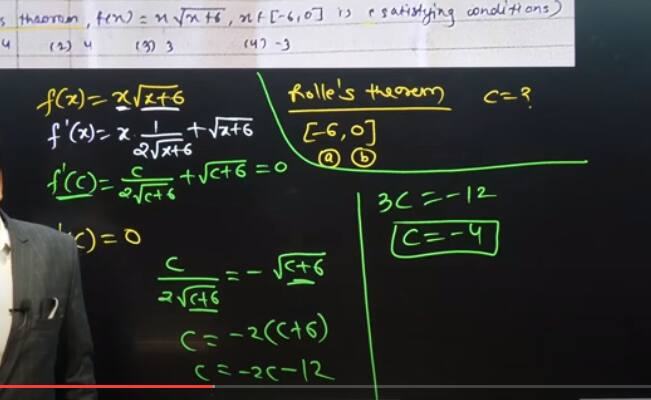 s theorem, f(x) = x√x+6, x∈[-6,0] is (satisfying conditions)
4 (2) 4 (3) 3 (4) -3
f(x) = x√x+6
f'(x) = x · 1/2√x+6 + √x+6
f'(c) = c/2√c+6 + √c+6 = 0
'(c) = 0
c/2√c+6 = -√c+6
c = -2(c+6)
c = -2c-12
Rolle's theorem c = ?
[-6,0]
(a) (b)
3c = -12
c = -4